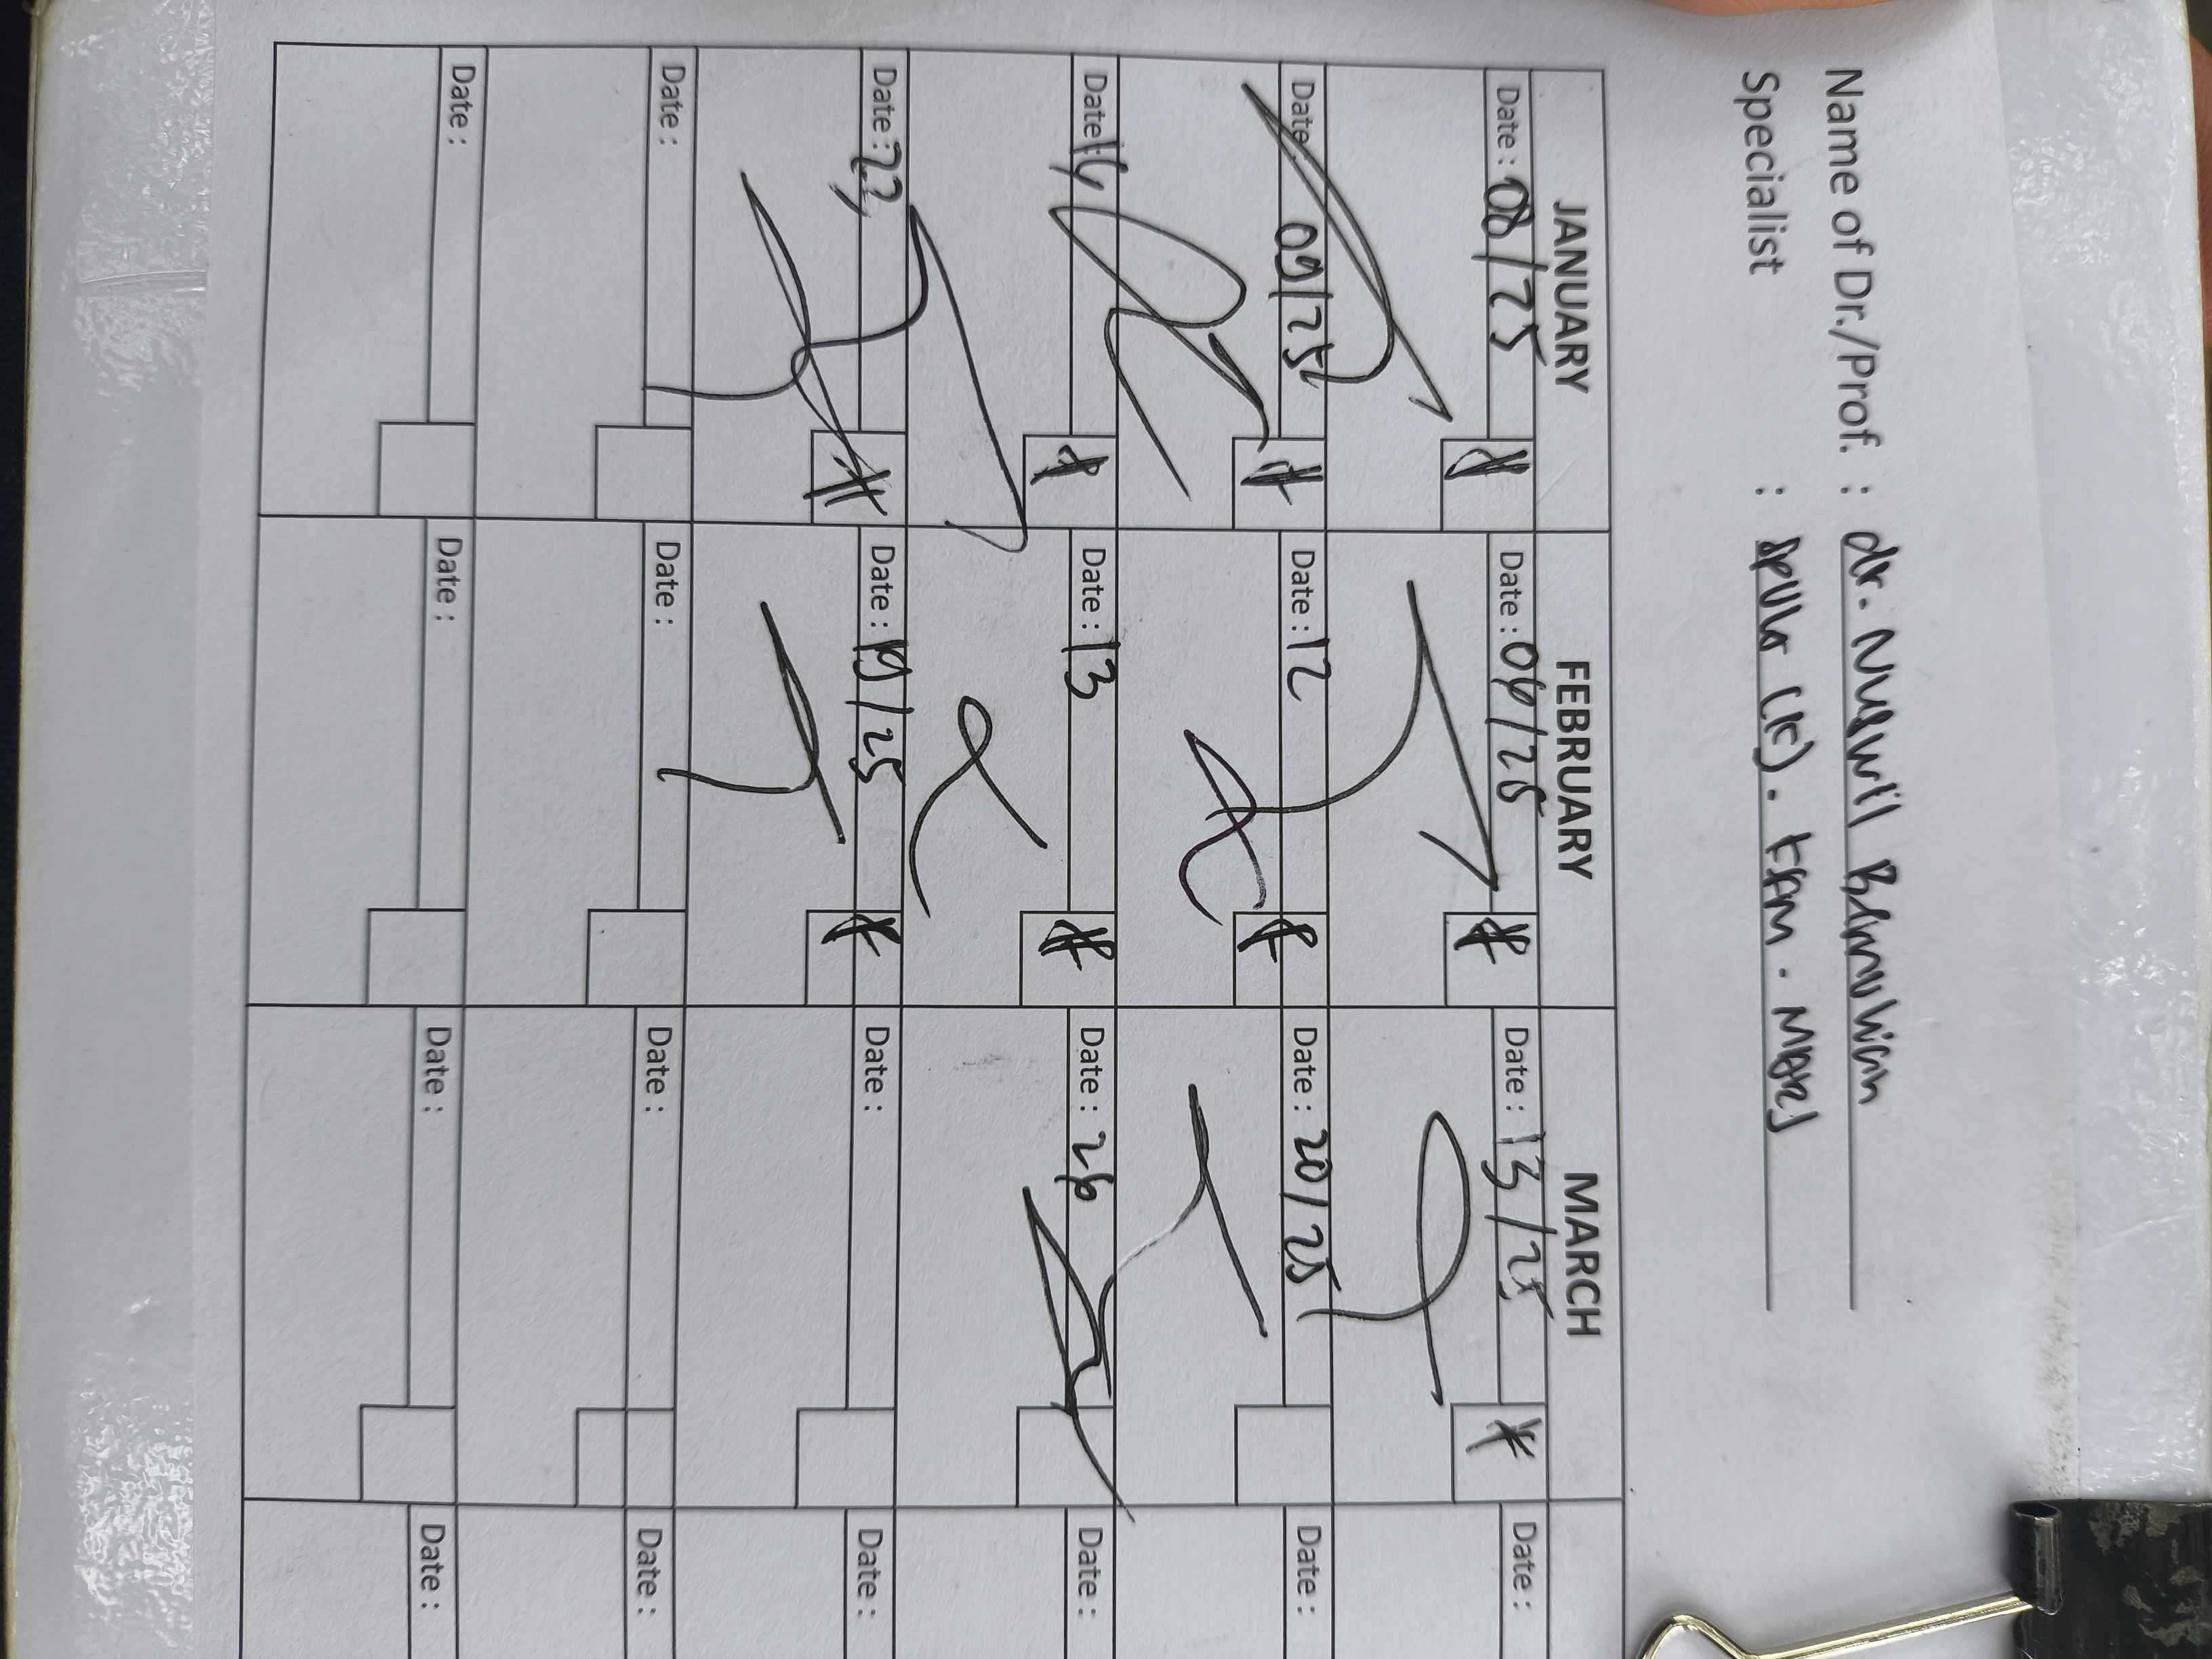 Name of Dr./Prof. : dr.
Specialist :
JANUARY FEBRUARY MARCH
Date : 08/25 Date : 06/25 Date : 13/25 Date :
Date : 09/25 Date : 12 Date : 20/25 Date :
Date : 16 Date : 13 Date : 26 Date :
Date : 22 Date : 19/25 Date : Date :
Date : Date : Date : Date :
Date : Date : Date : Date :